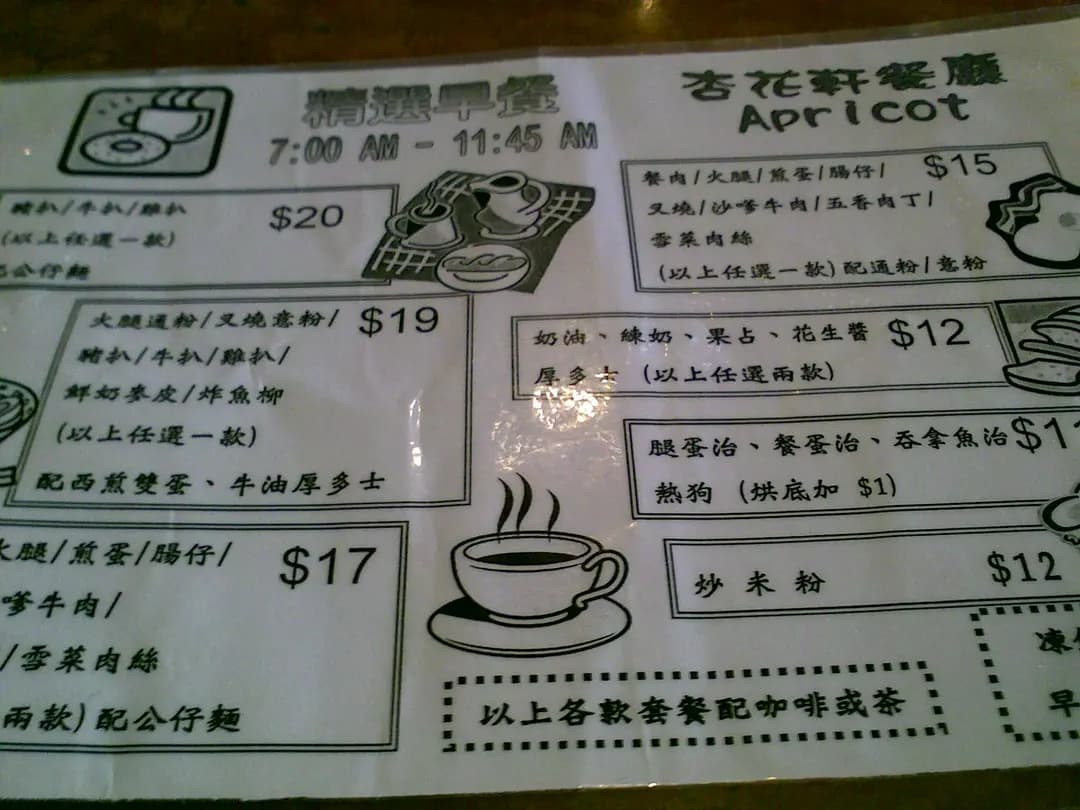 精選早餐
7:00 AM - 11:45 AM
杏花軒餐廳
Apricot
豬扒/牛扒/雞扒 $20
(以上任選一款)
公仔麵
火腿通粉/叉燒意粉/ $19
豬扒/牛扒/雞扒/
鮮奶麥皮/炸魚柳
(以上任選一款)
配西煎雙蛋、牛油厚多士
火腿/煎蛋/腸仔/ $17
嗲牛肉/
/雪菜肉絲
兩款)配公仔麵
餐肉/火腿/煎蛋/腸仔/ $15
叉燒/沙嗲牛肉/五香肉丁/
雪菜肉絲
(以上任選一款)配通粉/意粉
奶油、練奶、果占、花生醬 $12
厚多士 (以上任選兩款)
腿蛋治、餐蛋治、吞拿魚治 $1
熱狗 (烘底加 $1)
炒米粉 $12
以上各款套餐配咖啡或茶
凍
早